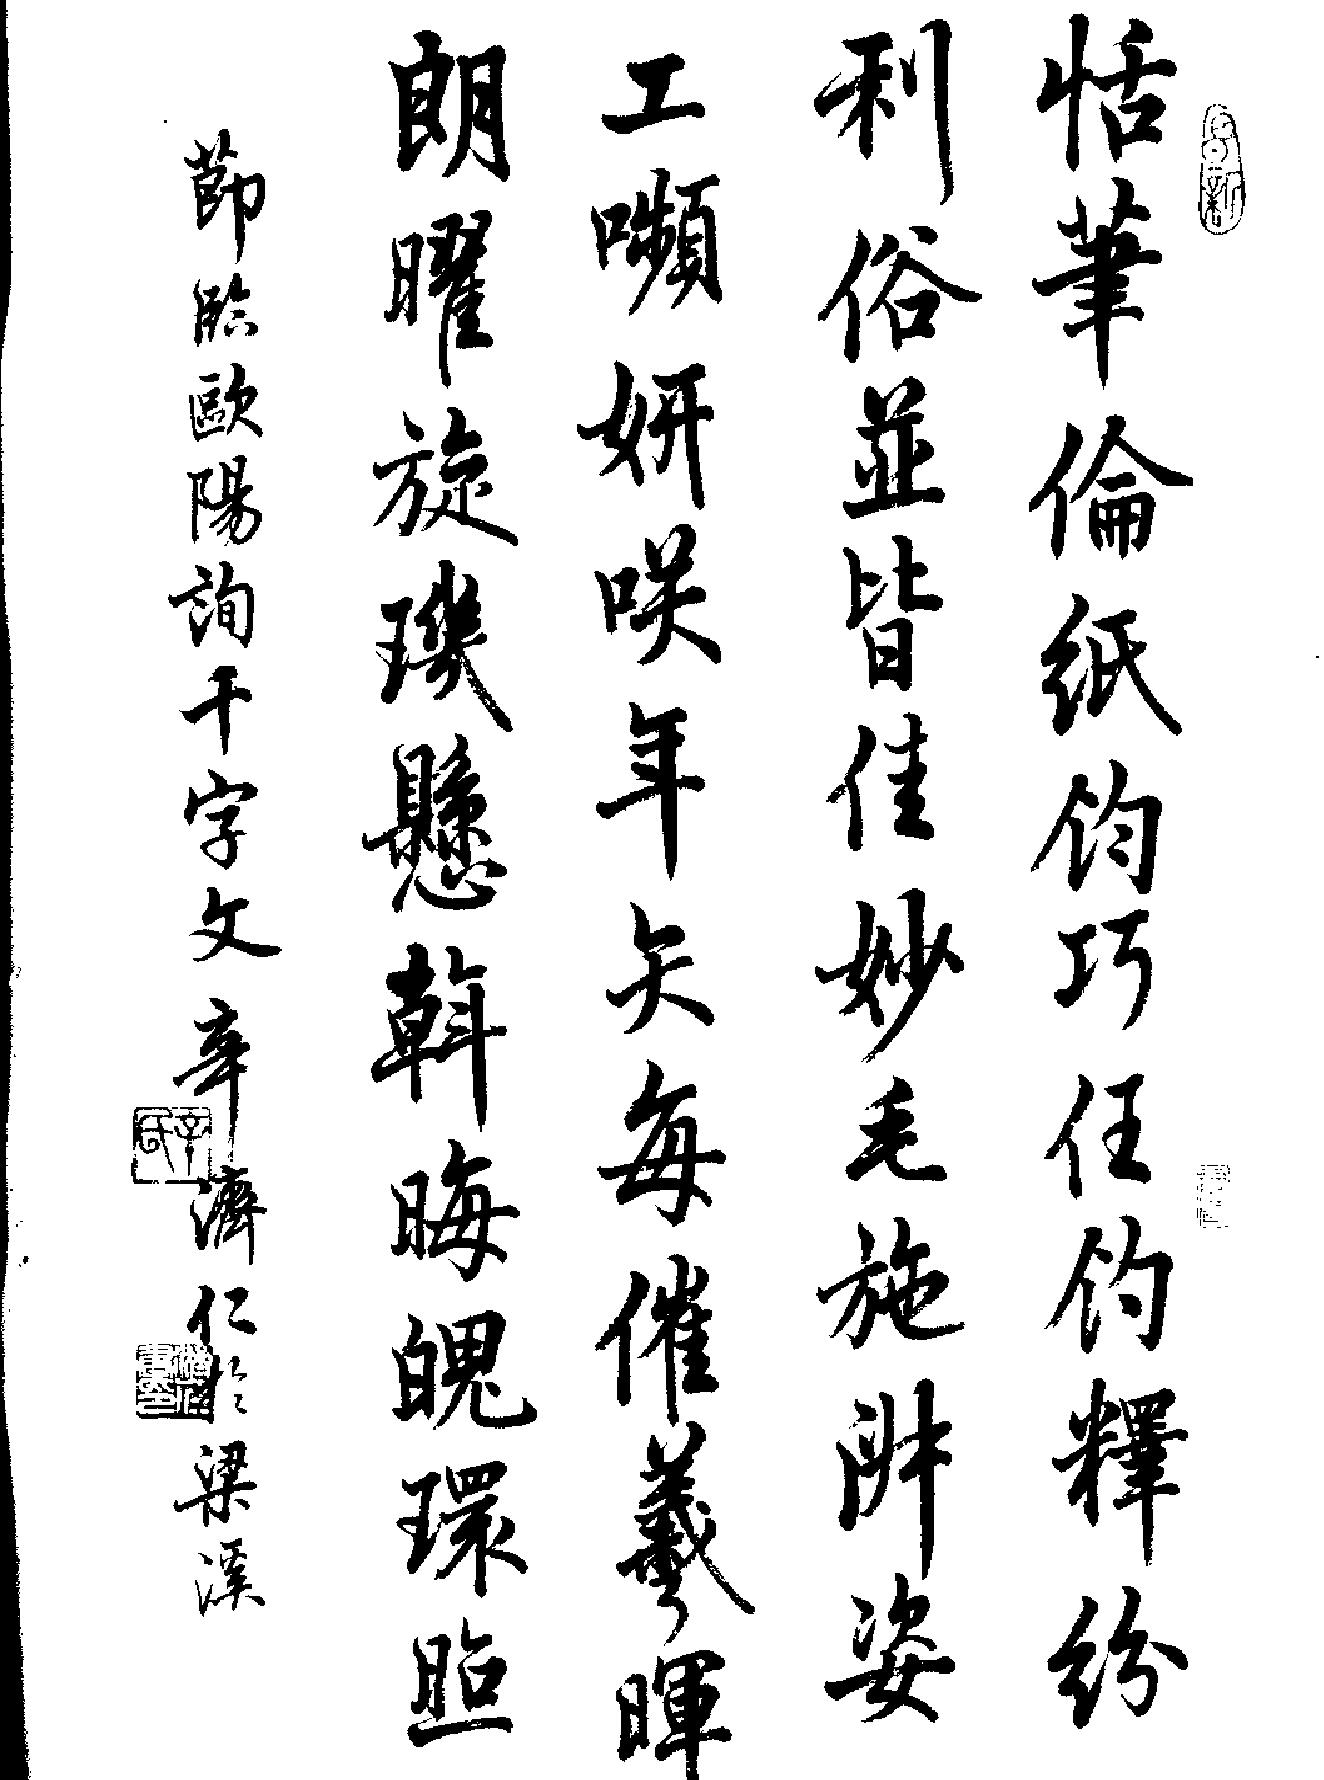 恬筆倫紙鈞巧任釣釋紛
利俗並皆佳妙毛施淑姿
工嚬妍咲年矢每催羲暉
朗曜旋璣懸斡晦魄環照
節臨歐陽詢千字文辛濟仁於梁溪
辛氏